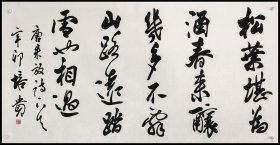 松葉堪為
酒春來釀
幾多不辭
山路遠踏
雪也相過
唐朱放詩
辛卯培貴